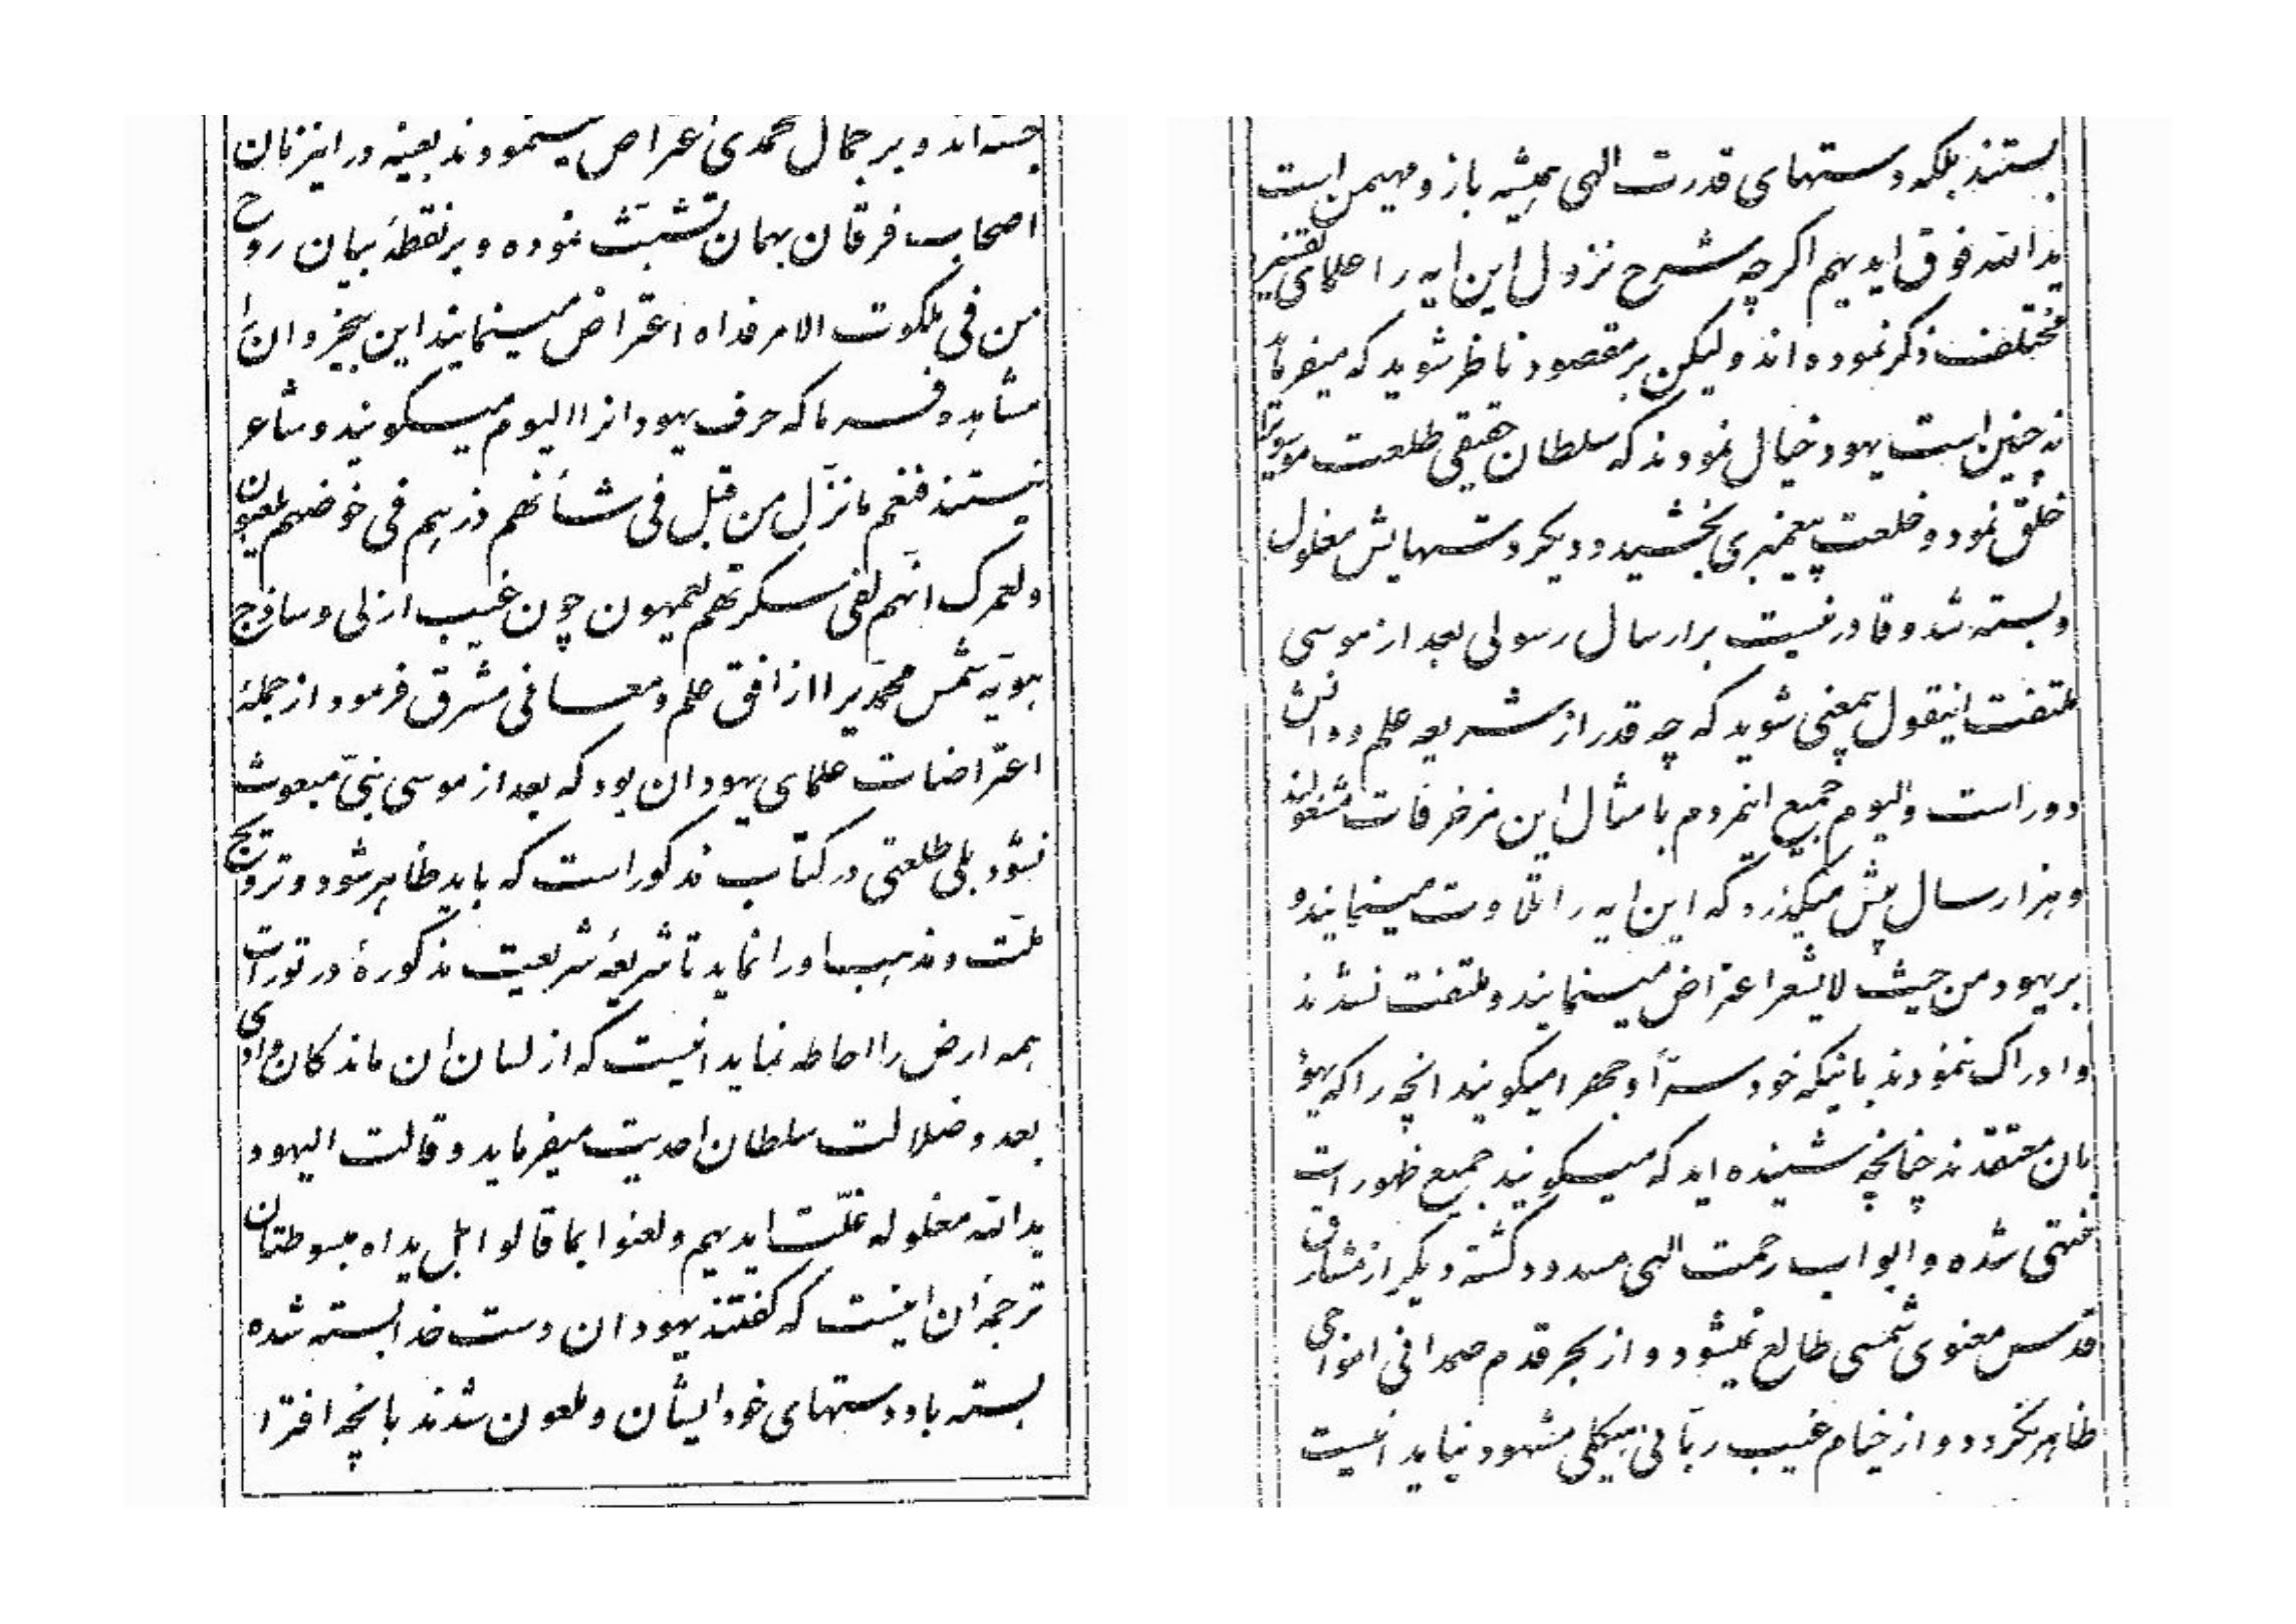 جسته‌اند و بر جمال محمدی اعراض مینمودند بعینه در اینزمان
اصحاب فرقان بهمان تشبّث نموده و بر نقطهٔ بیان روح
من فی ملکوت الامر فداه اعتراض مینمایند این بیخبرو انرا
مشاهده فرما که حرف یهود انرا الیوم میکویند و شاعر
نیستند فنعم ما نزّل من قبل فی شأنهم ذرهم فی خوضهم یلعبون
ولعمرک انّهم لفی سکرتهم یعمهون چون غیب ازلی و ساذج
هویّه شمس محمّدیرا از افق علم و معانی مشرق فرمود از جملهٔ
اعتراضات علمای یهود ان بود که بعد از موسی نبیّ مبعوث
نشود بلی طلعتی در کتاب مذکور است که باید ظاهر شود و ترویج
ملّت و مذهب او را نماید تا شریعهٔ شریعت مذکورهٔ در تورات
همه ارض را احاطه نماید اینست که از لسان ان ماندکان وادی
بعد و ضلالت سلطان احدیت میفرماید و قالت الیهود
یدالله مغلوله غلّت ایدیهم ولعنوا بما قالوا بل یداه مبسوطتان
ترجمهٔ ان اینست که کفتند یهودان دست خدا بسته شده
بسته باد دستهای خود ایشان و ملعون شدند بانچه افترا
بستند بلکه دستهای قدرت الهی همیشه باز و مهیمن است
یدالله فوق ایدیهم اکرچه شرح نزول این ایه را علمای تفسیر
مختلف ذکر نموده‌اند ولیکن بر مقصود ناظر شوید که میفرماید
نه چنین است یهود خیال نمودند که سلطان حقیقی طلعت موسویرا
خلق نمود و خلعت پیغمبری بخشید و دیکر دستهایش مغلول
و بسته شد و قادر نیست بر ارسال رسولی بعد از موسی
ملتفت اینقول بیمعنی شوید که چه قدر از شریعه علم و دانش
دور است و الیوم جمیع اینمردم بامثال این مزخرفات مشغولند
و هزار سال بیش میکذرد که این ایه را تلاوت مینمایند و
بر یهود من حیث لایشعر اعتراض مینمایند و ملتفت نشدند
و ادراک ننمودند باینکه خود سرّاً و جهراً میکویند انچه را که یهود
بان معتقدند چنانچه شنیده‌اید که میکویند جمیع ظهورات
منتهی شده و ابواب رحمت الهی مسدود کشته دیکر از مشارق
قدس معنوی شمسی طالع نمیشود و از بحر قدم صمدانی امواجی
ظاهر نکردد و از خیام غیب ربّانی هیکلی مشهود نیاید اینست